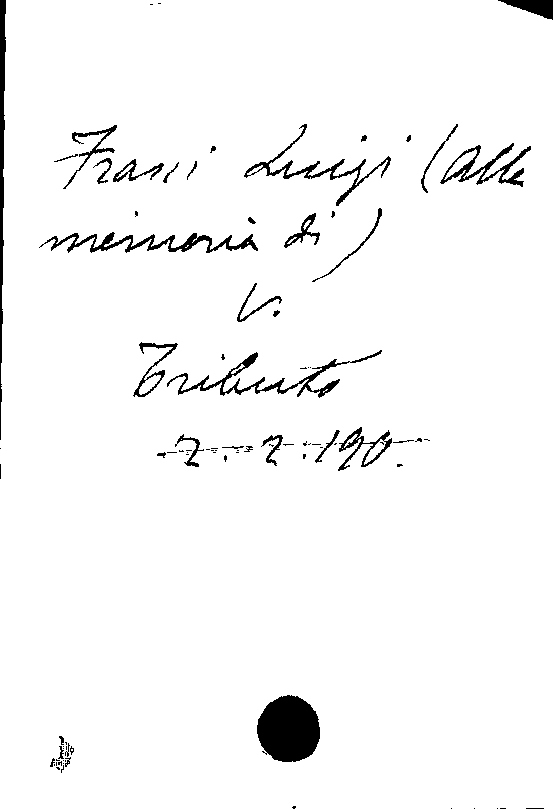 Frassi Luigi (alla
memoria di)
V.
Tributo
7. 2. 190.